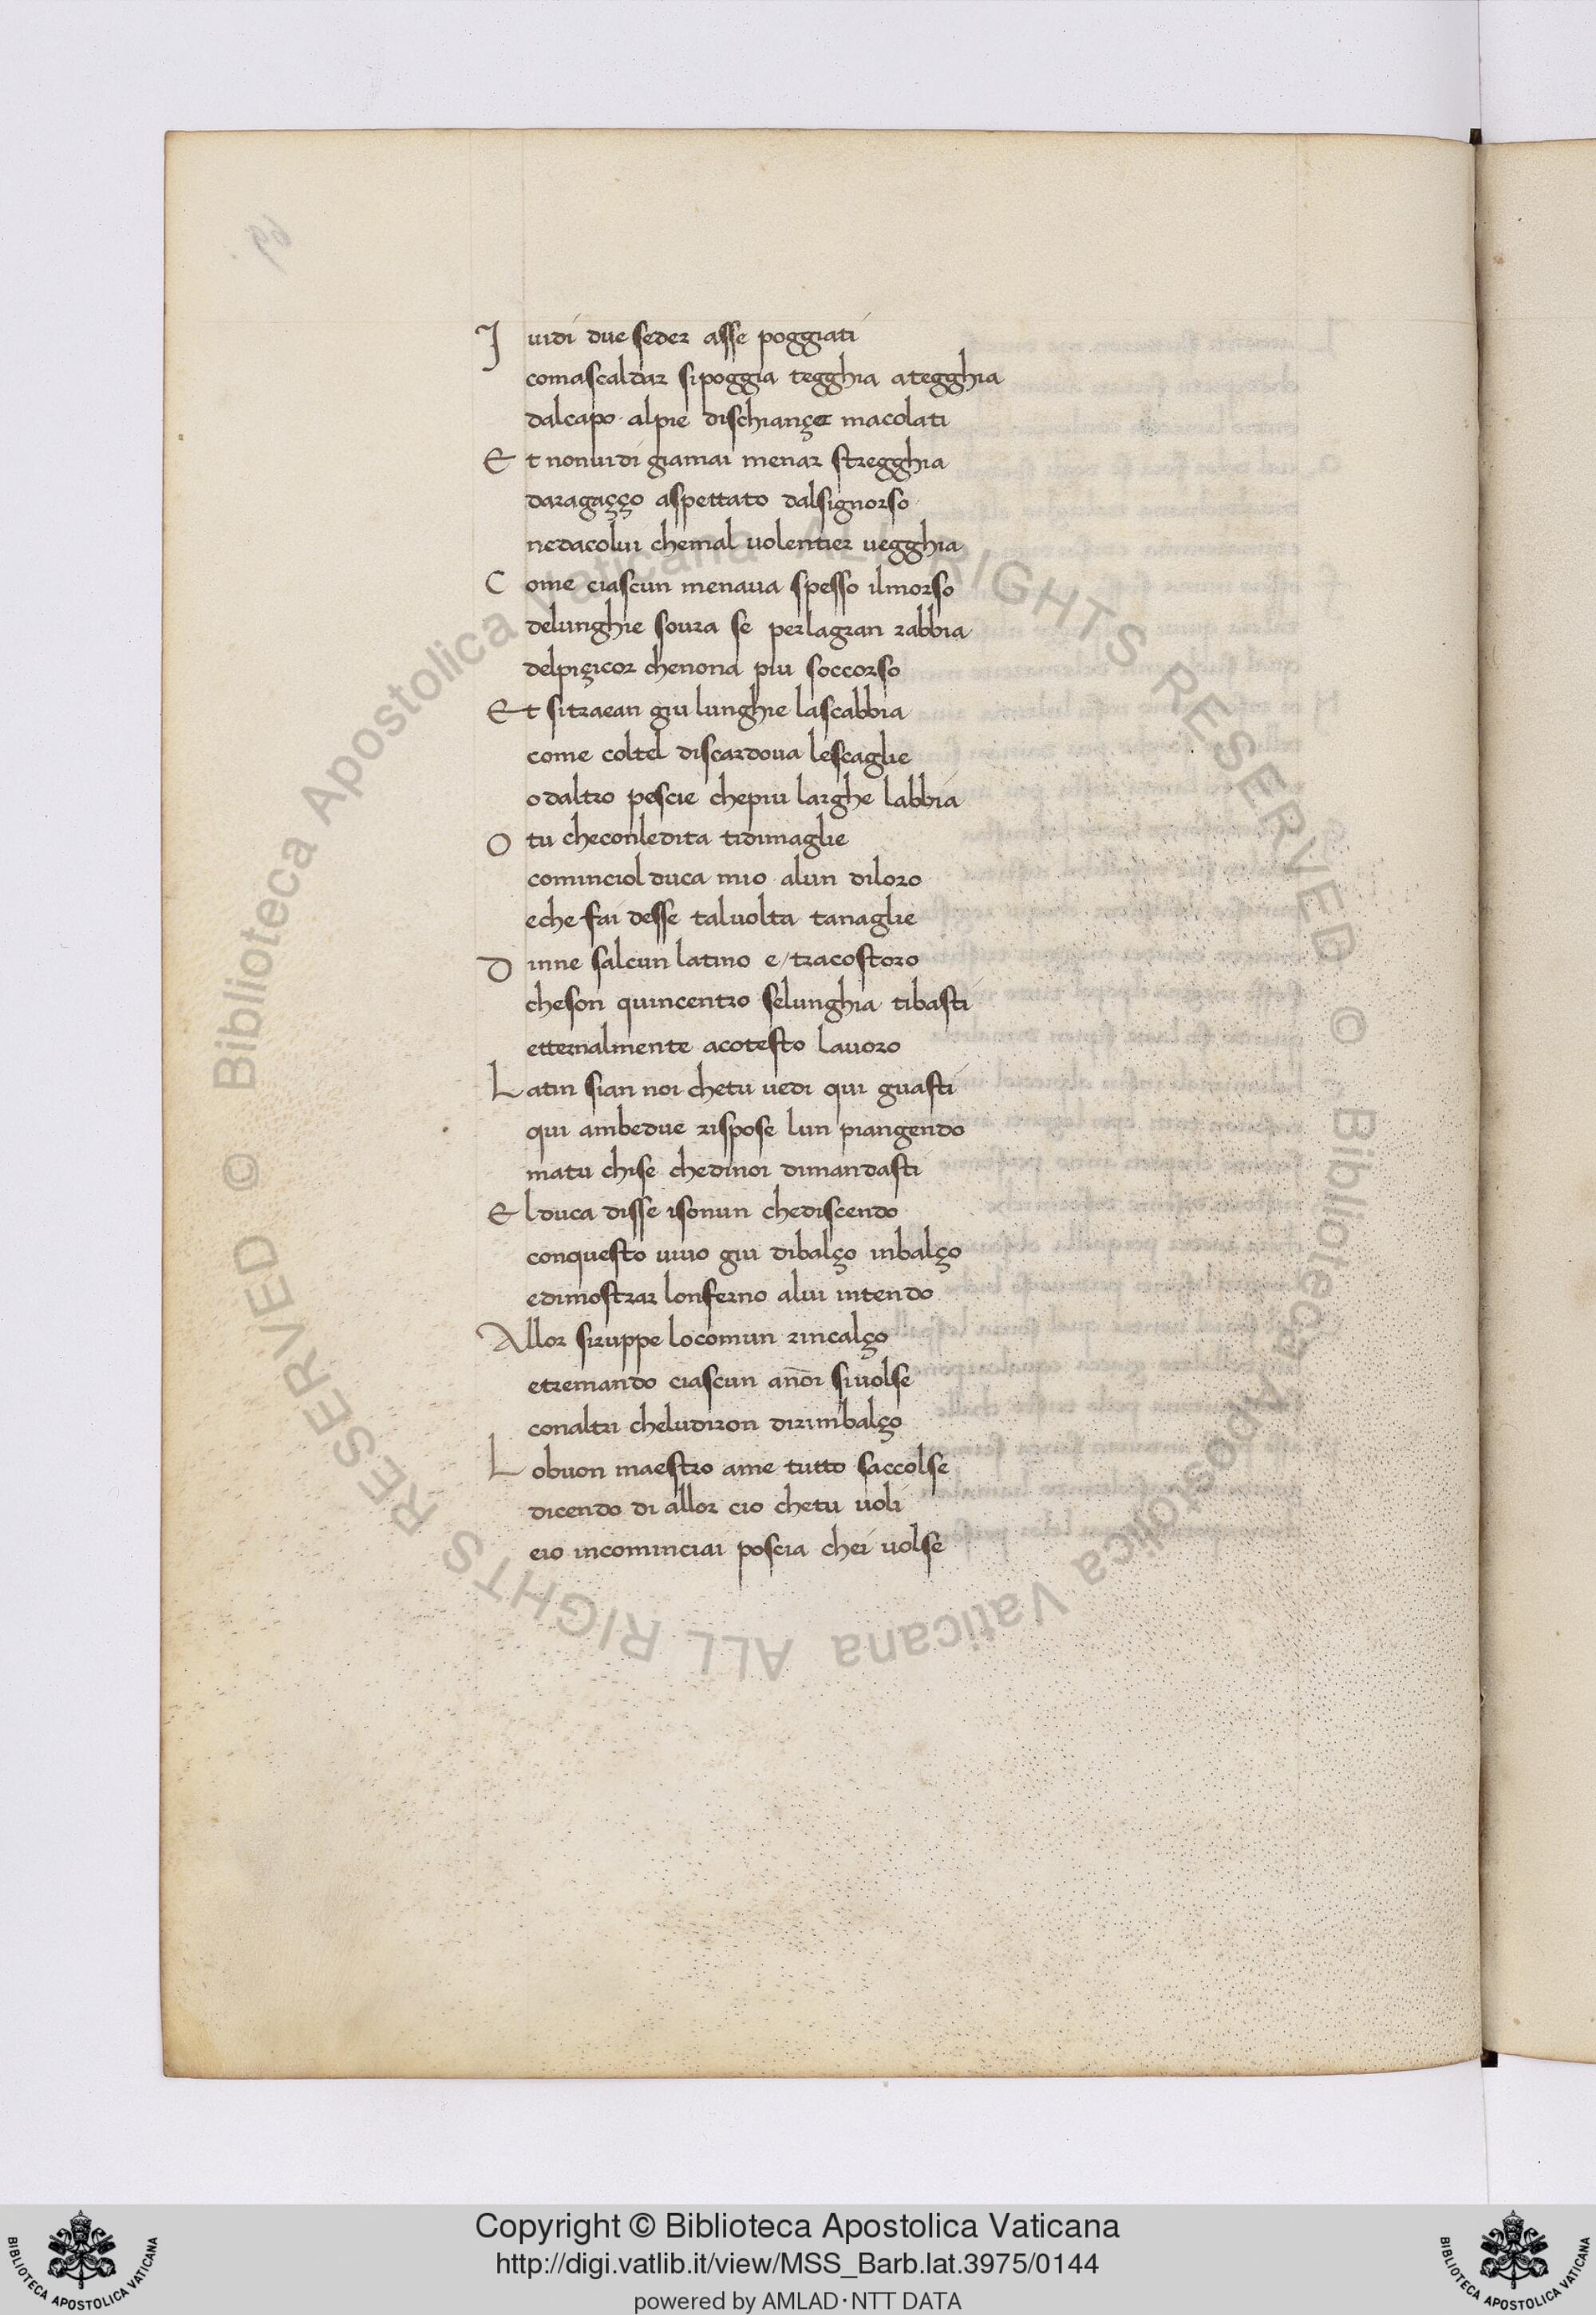 I uidi due seder asse poggiati
comascaldar sipoggia tegghia ategghia
dalcapo alpie dischiançe macolati
E t nonuidi giamai menar stregghia
daragaçço aspettato dalsignorso
nedacolui chemal uolentier uegghia
C ome ciascun menaua spesso ilmorso
delunghie soura se perlagran rabbia
delpiçicor chenona piu soccorso
E t sitraean giu lunghie lascabbia
come coltel discardoua lescaglie
odaltro pescie chepiu larghe labbia
O tu checonledita tidimaglie
cominciol duca mio alun diloro
eche fai desse taluolta tanaglie
D inne salcun latino e/tracostoro
cheson quincentro selunghia tibasti
etternalmente acotesto lauoro
L atin sian noi chetu uedi qui guasti
qui ambedue rispose lun piangendo
matu chise chedinoi dimandasti
E lduca disse isonun chediscendo
conquesto uiuo giu dibalço inbalço
edimostrar lonferno alui intendo
Allor siruppe locomun rincalço
etremando ciascun an̄oi siuolse
conaltri cheludiron dirimbalço
L obuon maestro ame tutto saccolse
dicendo di allor cio chetu uoli
eio incominciai poscia chei uolse
69
© Biblioteca Apostolica Vaticana ALL RIGHTS RESERVED
© Biblioteca Apostolica Vaticana ALL RIGHTS RESERVED
Copyright © Biblioteca Apostolica Vaticana
http://digi.vatlib.it/view/MSS_Barb.lat.3975/0144
powered by AMLAD·NTT DATA
BIBLIOTECA APOSTOLICA VATICANA
BIBLIOTECA APOSTOLICA VATICANA